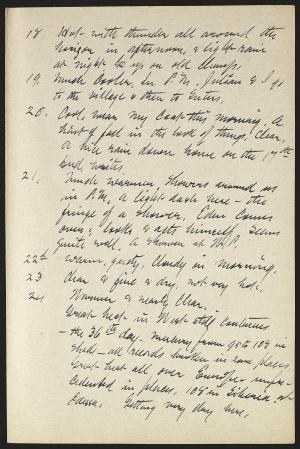 18. Hot with thunder all around the
horizon in afternoon, & light rain
at night. up on old clump.
19. Much cooler. In P.M. Julian & I go
to the village & then to
20. Cool, wear my coat this morning. A
hint of fall in the look of things. Clear,
A nice rain down home on the 17th
Hud. writes.
21. Much warmer, showers around us
in P.M. A light dash here - the
fringe of a shower. Eden comes
over; looks & acts himself, seems
quite well. A shower at W.P.
22nd Warm, gusty, cloudy in morning.
23 Clear & fine & dry, not very hot.
24 Warmer & nearly clear.
Great heat in West still continues
- the 36th day. mercury from 90 to 108 in
shade - all records broken in some places.
Great heat all over Europe unpre-
cedented in places, 108 in Siberia, at
Odessa. Getting very dry here.